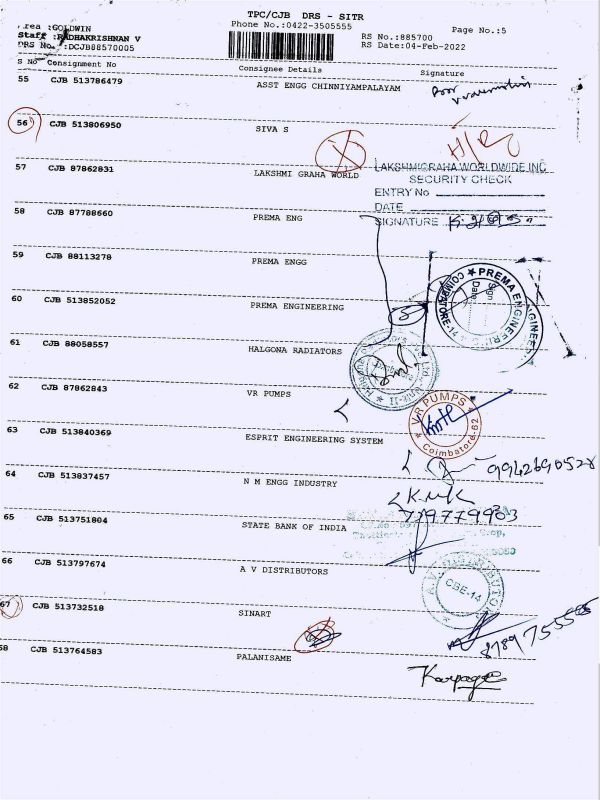 TPC/CJB DRS - SITR
Area :GOLDWIN
Phone No.:0422-3505555
Page No.:5
Staff :RADHAKRISHNAN V
RS No.:885700
DRS No. :DCJB88570005
RS Date:04-Feb-2022
S No Consignment No Consignee Details Signature
55 CJB 513786479 ASST ENGG CHINNIYAMPALAYAM
56 CJB 513806950 SIVA S
57 CJB 87862831 LAKSHMI GRAHA WORLD
LAKSHMIGRAHA WORLDWIDE INC
SECURITY CHECK
ENTRY No
DATE
SIGNATURE
58 CJB 87788660 PREMA ENG
59 CJB 88113278 PREMA ENGG
PREMA ENGINEERING
COIMBATORE-14
Sign
Date
60 CJB 513852052 PREMA ENGINEERING
61 CJB 88058557 HALGONA RADIATORS
62 CJB 87862843 VR PUMPS
VR PUMPS
Coimbatore-62
63 CJB 513840369 ESPRIT ENGINEERING SYSTEM
9942690528
64 CJB 513837457 N M ENGG INDUSTRY
65 CJB 513751804 STATE BANK OF INDIA
66 CJB 513797674 A V DISTRIBUTORS
CBE-14
67 CJB 513732518 SINART
68 CJB 513764583 PALANISAME